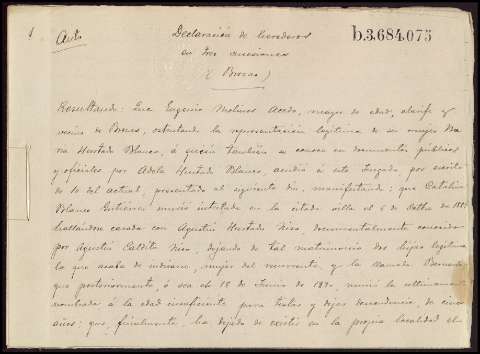 Auto
Declaración de herederos
en tres sucesiones
(Brozas)
b.3.684.075
Resultando: Que Eugenio Molinos Acedo, mayor de edad, alarife y
vecino de Brozas, ostentando la representación legítima de su mujer Ma
ria Hurtado Blanco, á quien también se conoce en documentos públicos
y oficiales por Adela Hurtado Blanco, acudió á este Juzgado, por escrito
de 10 del actual, presentado al siguiente dia, manifestando: que Catalina
Blanco Gutiérrez murió intestada en la citada villa el 6 de Octbre de
hallándose casada con Agustín Hurtado Niso, documentalmente conocido
por Agustín Niso, dejando de tal matrimonio dos hijas legítimas
la que acaba de indicarse, mujer del recurrente, y la llamada Bernarda
que posteriormente, ó sea el 18 de Junio de 1890, murió la ultimamente
nombrada á la edad insuficiente para testar y dejar descendencia, de cinco
años: que, finalmente, ha dejado de existir en la propia localidad el